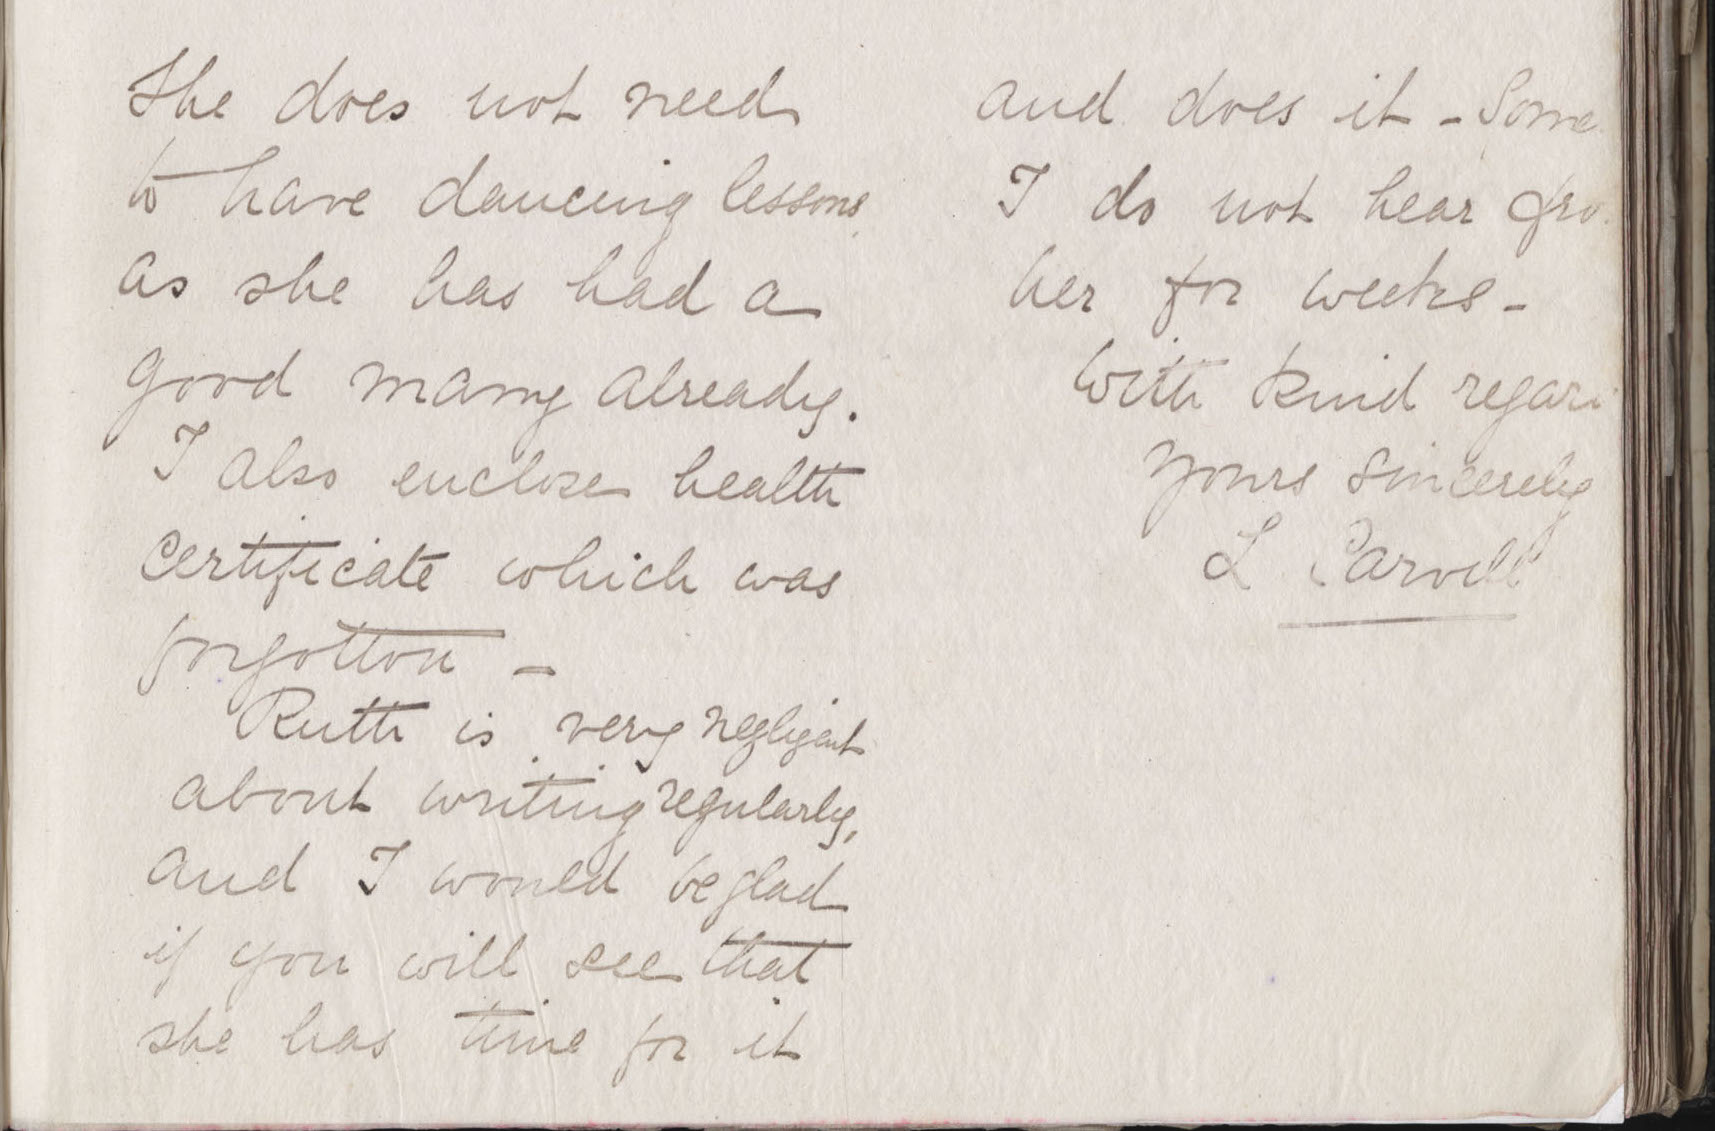 She does not need
to have dancing lessons
as she has had a
good many already.
I also enclose health
certificate which was
forgotton -
Ruth is very negligent
about writing regularly,
and I would be glad
if you will see that
she has time for it
and does it - Some
I do not hear fro
her for weeks -
With kind regar
yours sincerely
L Carvell